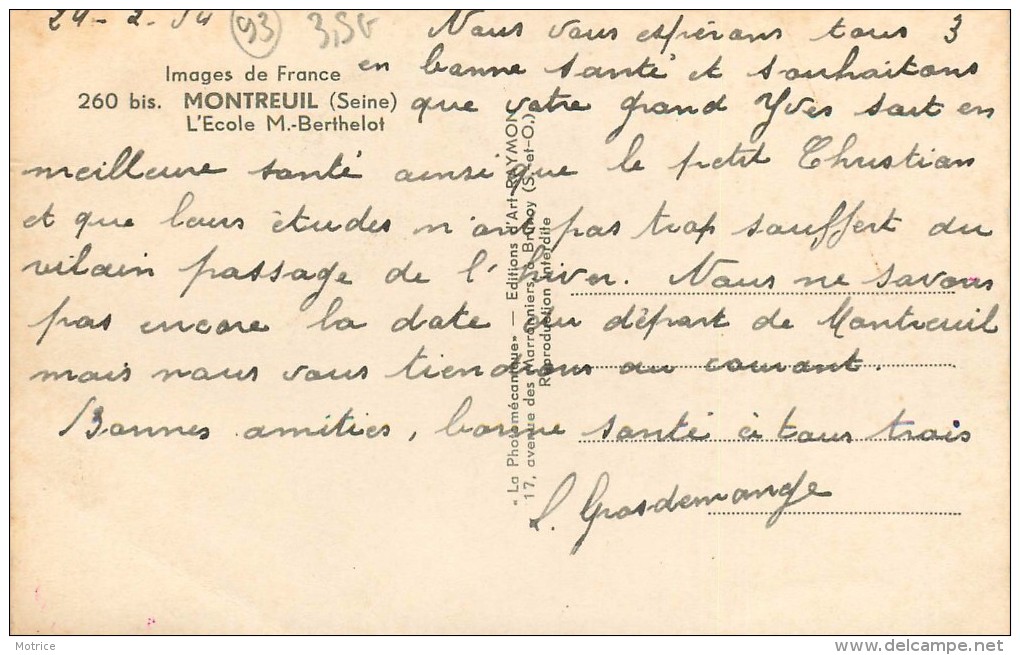 24-2-54
93
3,50
Nous vous espérons tous 3
en bonne santé et souhaitons
Images de France
260 bis. MONTREUIL (Seine)
L'Ecole M.-Berthelot
que votre grand Yves soit en
meilleure santé ainsi que le petit Christian
et que leurs études n'ont pas trop souffert du
vilain passage de l'hiver. Nous ne savons
pas encore la date du départ de Montreuil
mais nous vous tiendrons au courant.
Bonnes amitiés, bonne santé à tous trois
L. Grosdemange
« La Photomécanique » — Editions d'Art RAYMON
17, avenue des Marronniers, à Brunoy (S.-et-O.)
Reproduction interdite
Motrice
www.delcampe.net